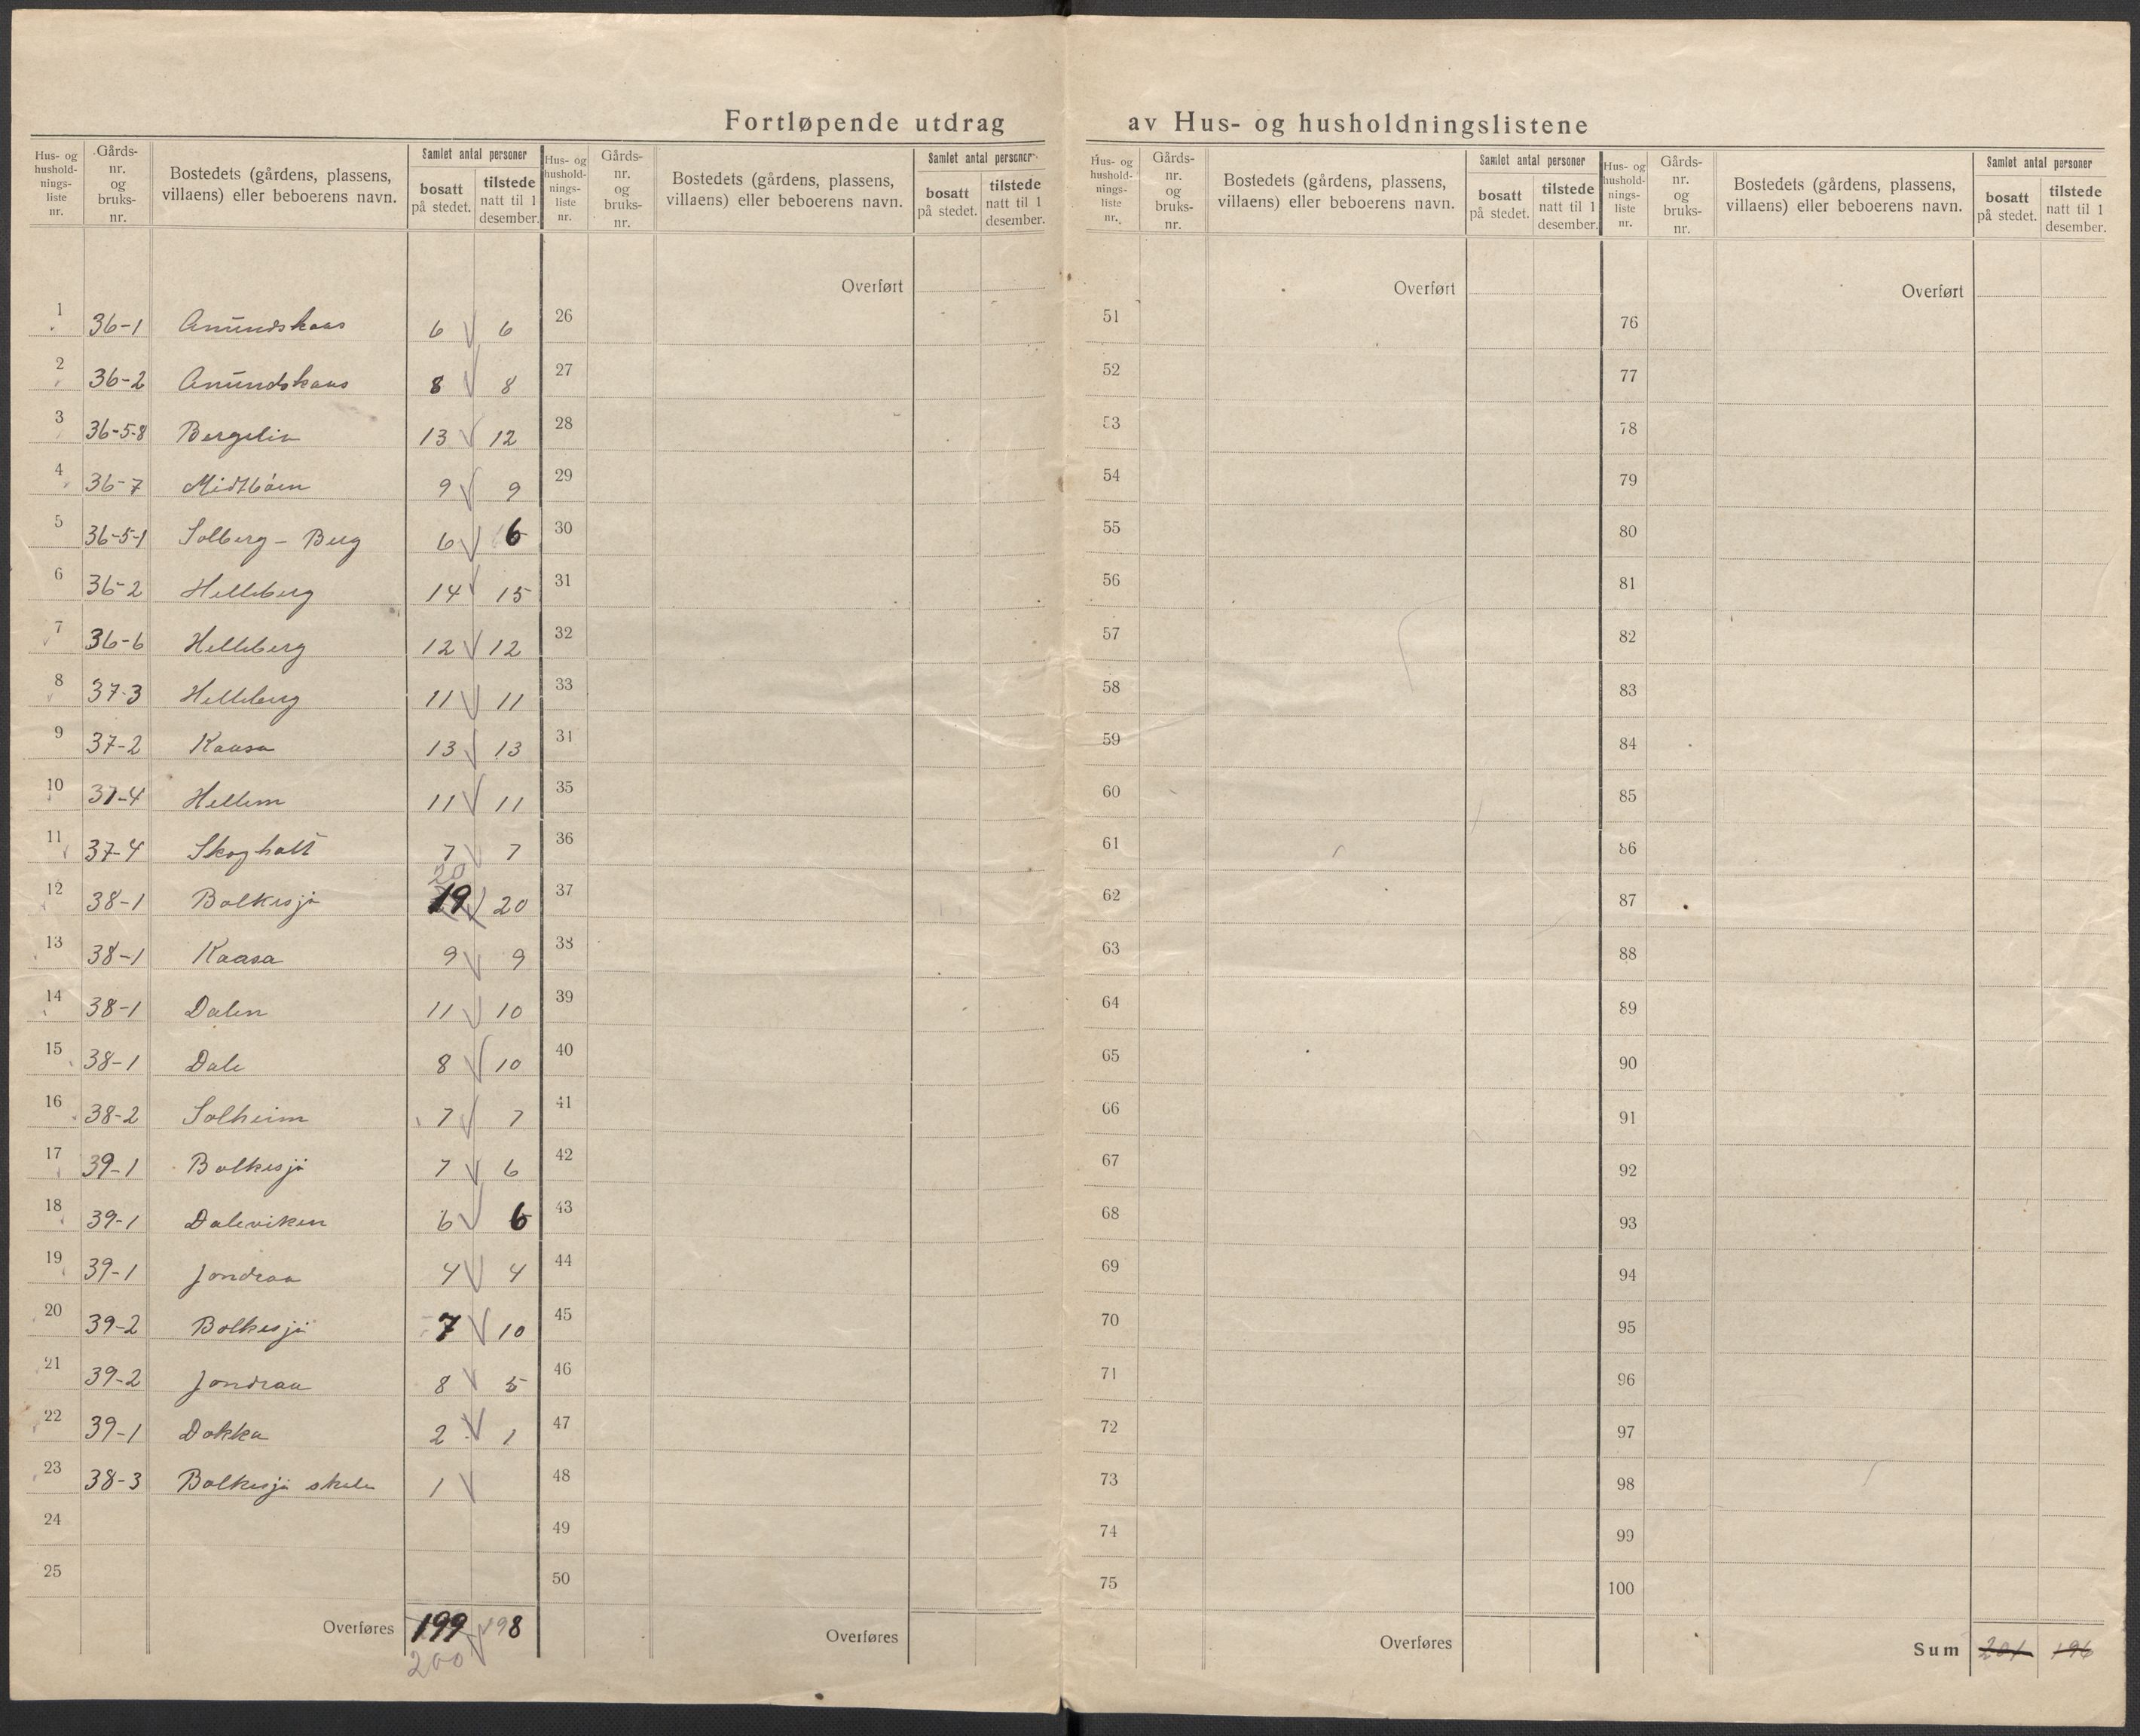 Fortløpende utdrag av Hus- og husholdningslistene
Hus- og hushold-nings-liste nr. Gårds-nr. og bruks-nr. Bostedets (gårdens, plassens, villaens) eller beboerens navn. Samlet antal personer bosatt på stedet. tilstede natt til 1 desember.
Hus- og hushold-nings-liste nr. Gårds-nr. og bruks-nr. Bostedets (gårdens, plassens, villaens) eller beboerens navn. Samlet antal personer bosatt på stedet. tilstede natt til 1 desember.
Hus- og hushold-nings-liste nr. Gårds-nr. og bruks-nr. Bostedets (gårdens, plassens, villaens) eller beboerens navn. Samlet antal personer bosatt på stedet. tilstede natt til 1 desember.
Hus- og hushold-nings-liste nr. Gårds-nr. og bruks-nr. Bostedets (gårdens, plassens, villaens) eller beboerens navn. Samlet antal personer bosatt på stedet. tilstede natt til 1 desember.
Overført Overført Overført
1 36-1 Anundskaas 6 6 26 51 76
2 36-2 Anundskaas 8 8 27 52 77
3 36-5-8 Bergelia 13 12 28 53 78
4 36-7 Midtbøen 9 9 29 54 79
5 36-5-1 Solberg - Berg 6 6 30 55 80
6 36-2 Helleberg 14 15 31 56 81
7 36-6 Helleberg 12 12 32 57 82
8 37-3 Helleberg 11 11 33 58 83
9 37-2 Kaasa 13 13 31 59 84
10 37-4 Hellem 11 11 35 60 85
11 37-4 Skogholt 7 7 36 61 86
20
12 38-1 Bolkesjø 19 20 37 62 87
13 38-1 Kaasa 9 9 38 63 88
14 38-1 Dalen 11 10 39 64 89
15 38-1 Dale 8 10 40 65 90
16 38-2 Solheim 7 7 41 66 91
17 39-1 Bolkesjø 7 6 42 67 92
18 39-1 Daleviken 6 6 43 68 93
19 39-1 Jondraa 4 4 44 69 94
20 39-2 Bolkesjø 7 10 45 70 95
21 39-2 Jondraa 8 5 46 71 96
22 39-1 Dokka 2 1 47 72 97
23 38-3 Bolkesjø skole 1 48 73 98
24 49 74 99
25 50 75 100
Overføres 199 198 Overføres Overføres Sum 201 196
200